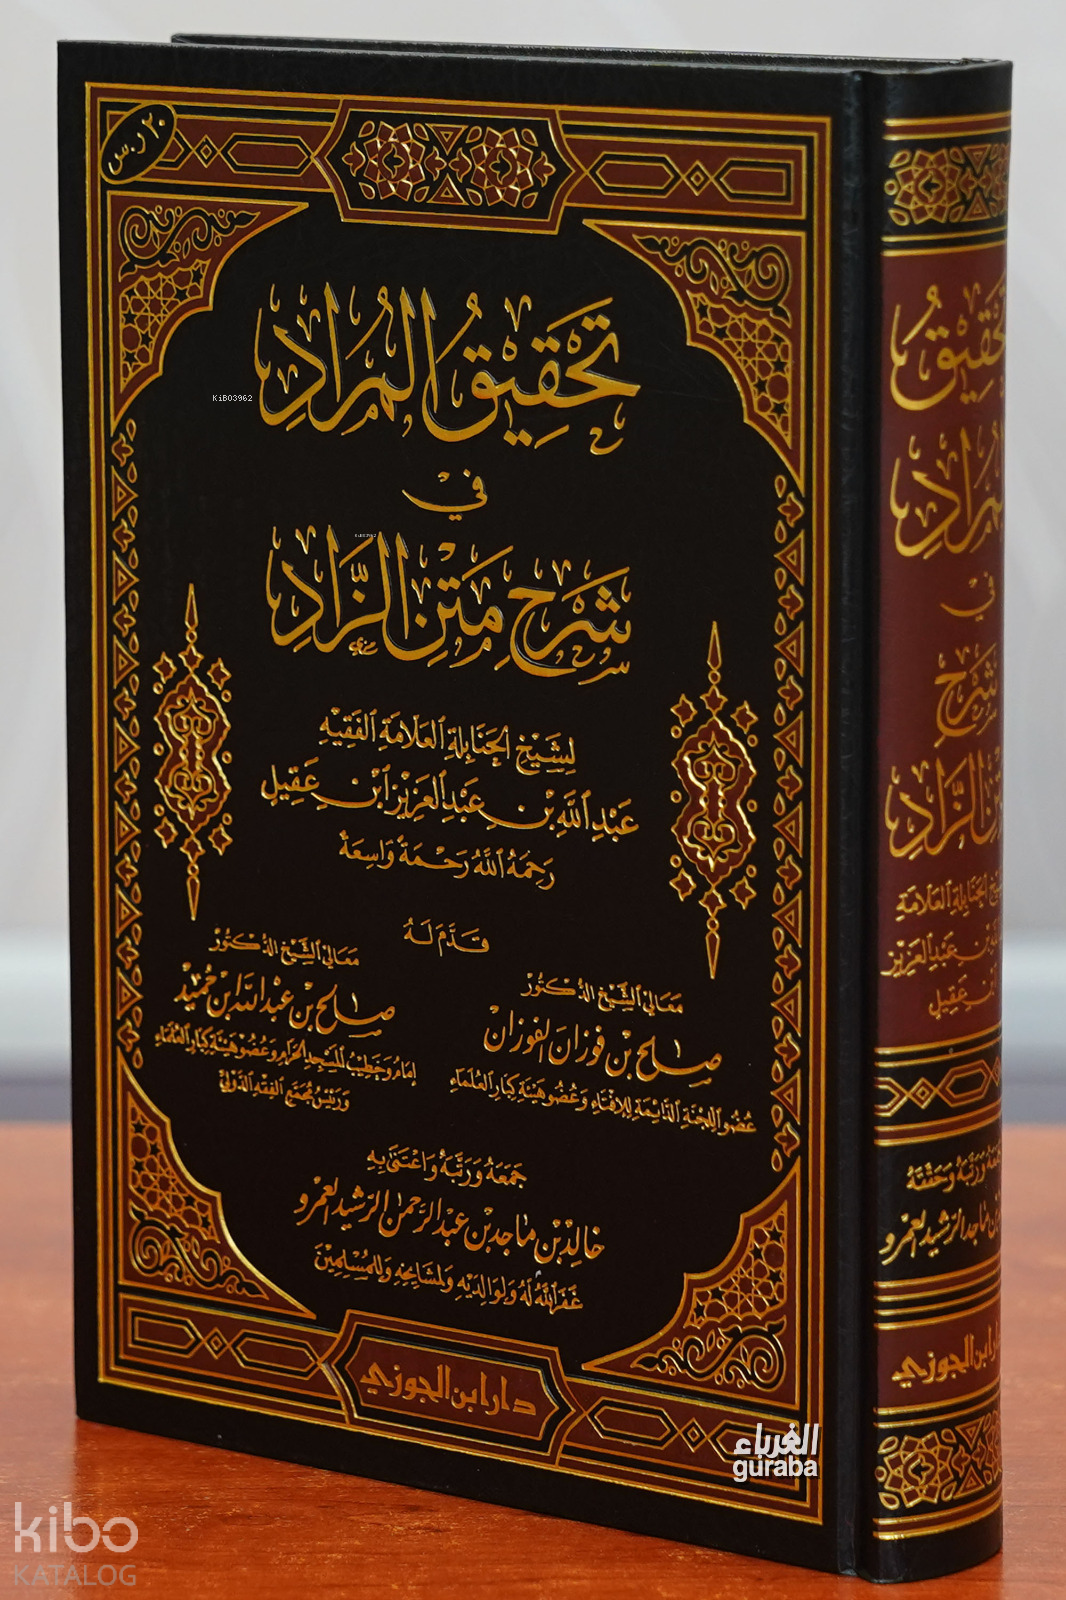 ٢٠ ر.س
تحقيق المراد
في
شرح متن الزاد
لشيخ الحنابلة العلامة الفقيه
عبد الله بن عبد العزيز ابن عقيل
رحمه الله رحمة واسعة
قدم له
معالي الشيخ الدكتور
صالح بن فوزان الفوزان
عضو اللجنة الدائمة للإفتاء وعضو هيئة كبار العلماء
معالي الشيخ الدكتور
صالح بن عبد الله ابن حميد
إمام وخطيب المسجد الحرام وعضو هيئة كبار العلماء
ورئيس مجمع الفقه الدولي
جمعه ورتبه واعتنى به
خالد بن ماجد بن عبد الرحمن الرشيد العمرو
غفر الله له ولوالديه ولمشايخه وللمسلمين
دار ابن الجوزي
تحقيق
المراد
في
شرح
متن الزاد
شيخ الحنابلة العلامة
بن عبد العزيز
ابن عقيل
جمعه ورتبه وحققه
بن ماجد الرشيد العمرو
دار ابن الجوزي
KiB03962
KiB03962
الغرباء
guraba
kibo
KATALOG